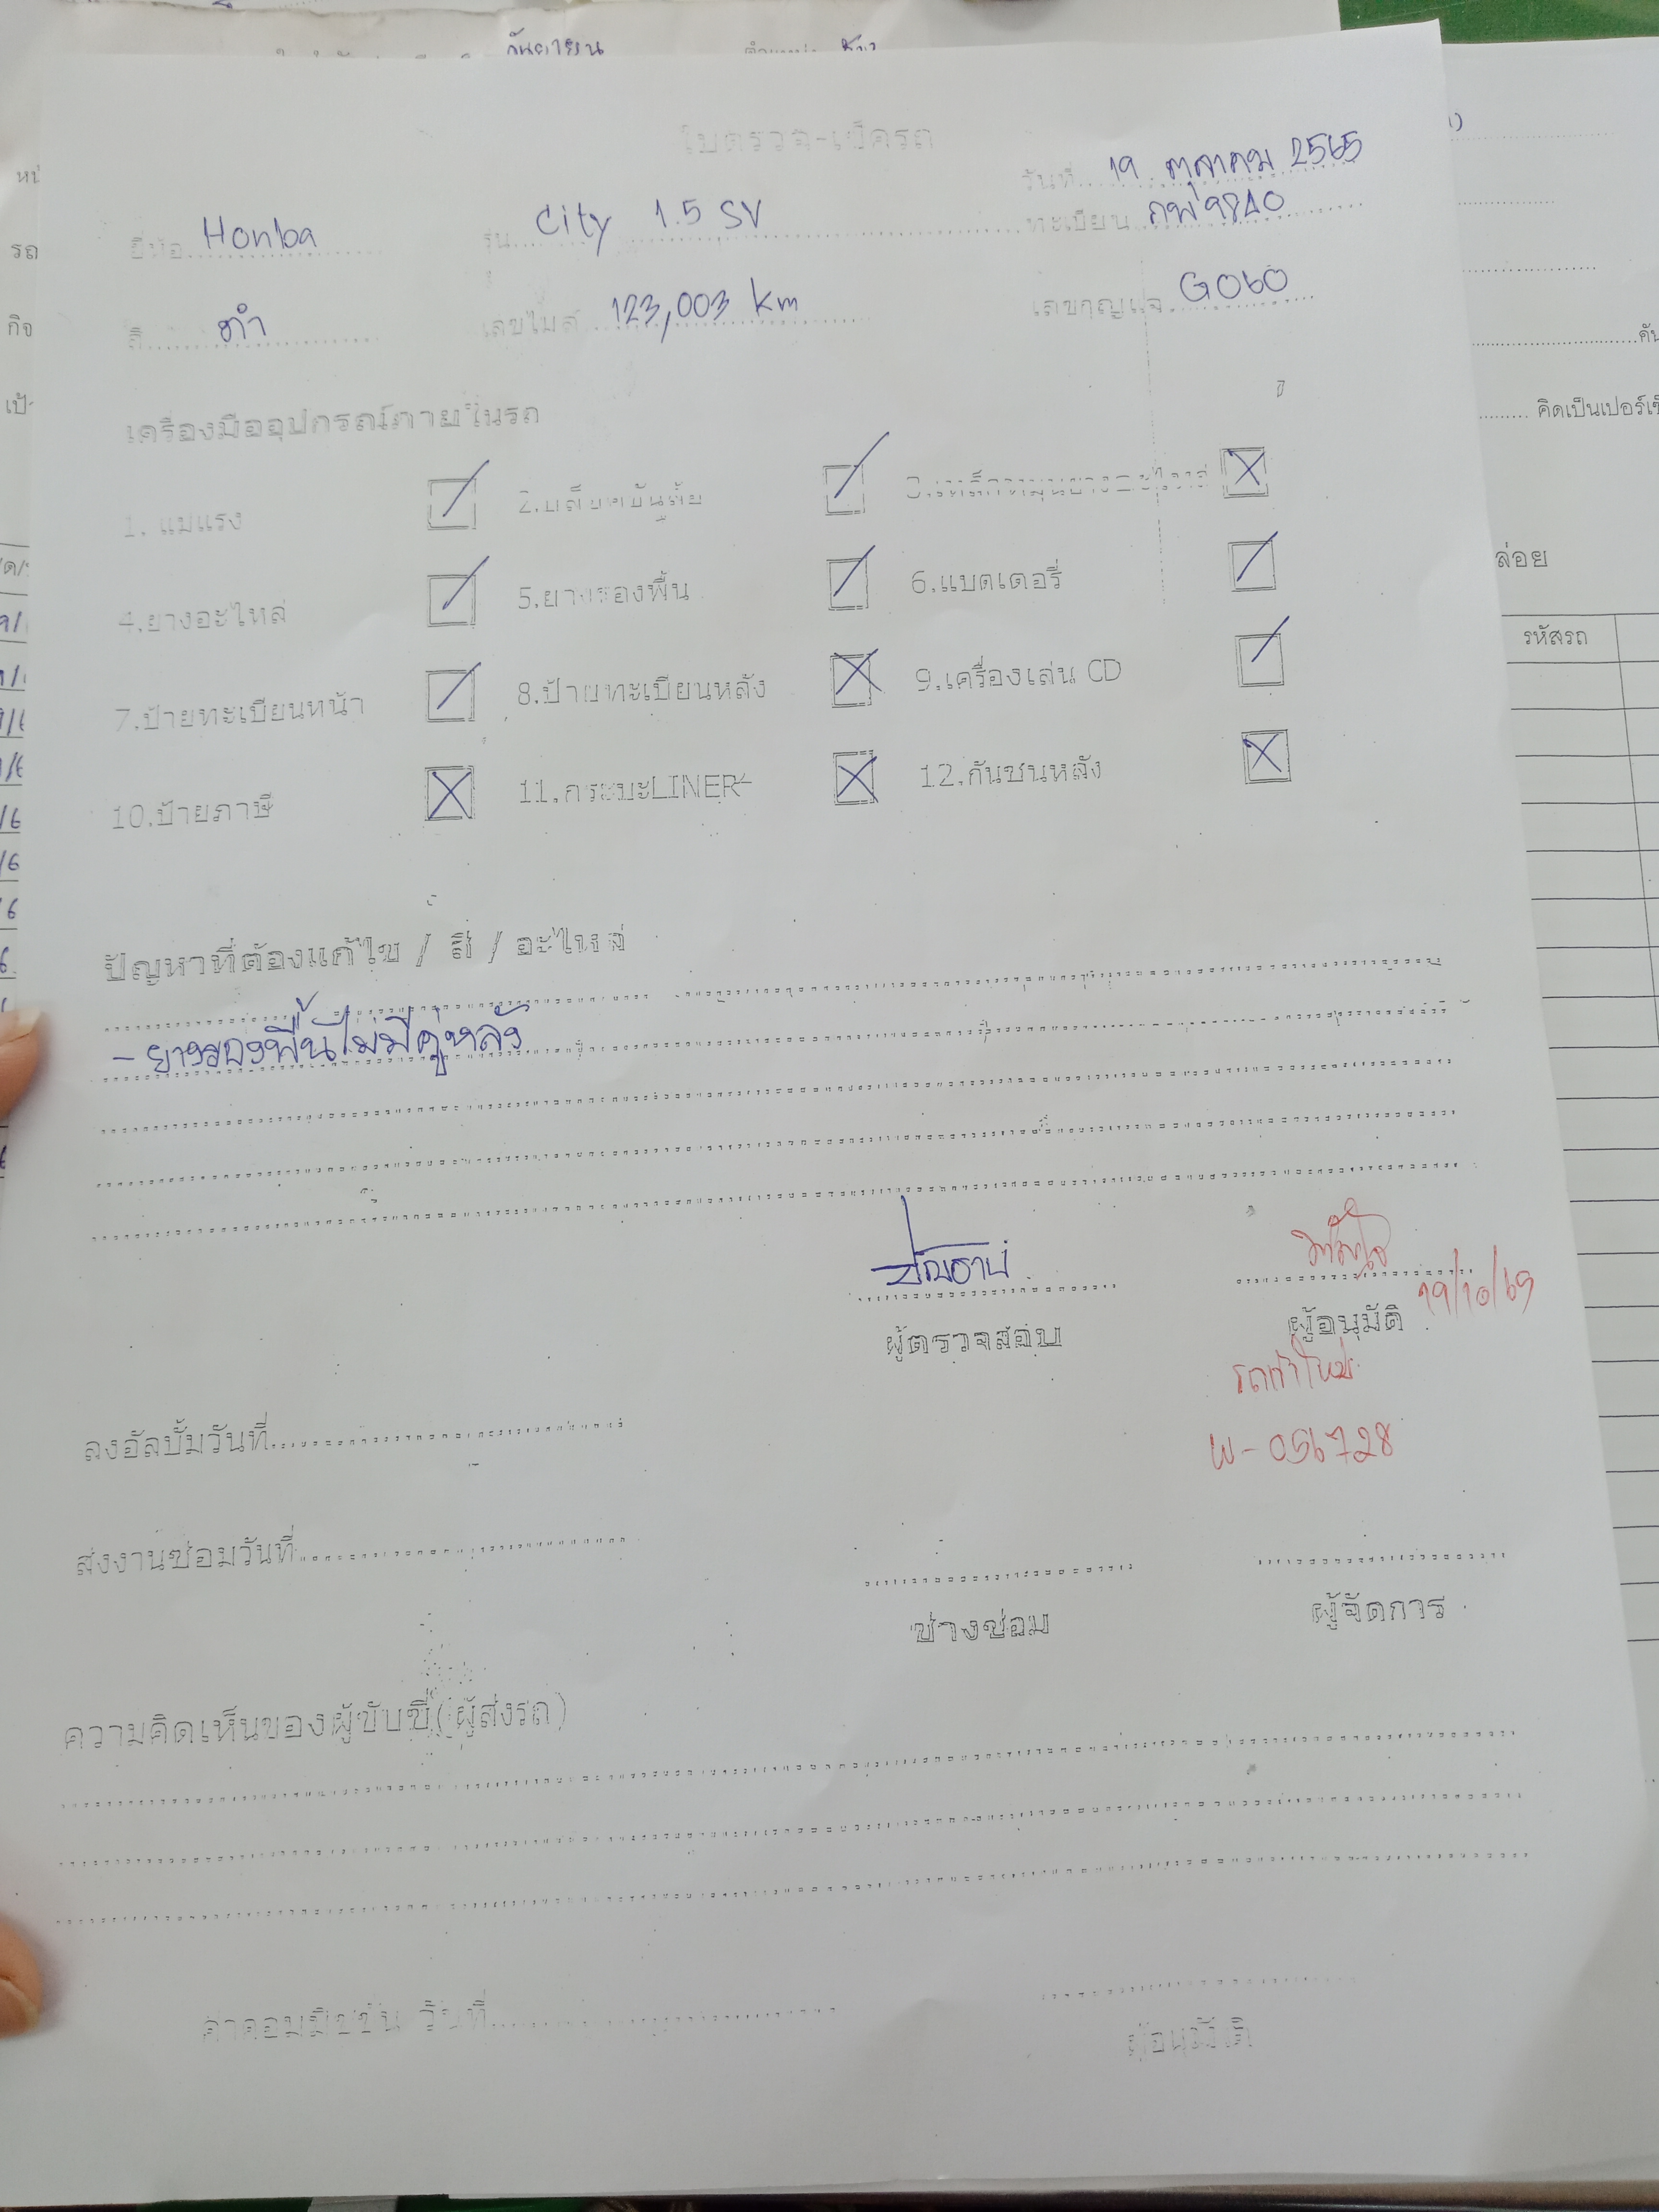 ใบตรวจ-เช็ครถ
วันที่ 19 ตุลาคม 2565
ยี่ห้อ Honda รุ่น City 1.5 SV ทะเบียน
สี ดำ เลขไมล์ 123,003 km เลขกุญแจ G060
เครื่องมืออุปกรณ์ภายในรถ
1. แม่แรง 2.บล็อคขันล้อ
4.ยางอะไหล่ 5.ยางรองพื้น 6.แบตเตอรี่
7.ป้ายทะเบียนหน้า 8.ป้ายทะเบียนหลัง 9.เครื่องเล่น CD
10.ป้ายภาษี 11.กระบะLINER 12.กันชนหลัง
ปัญหาที่ต้องแก้ไข / สี / อะไหล่
- ยางรองพื้นไม่มีคู่หลัง
19/10/65
ผู้ตรวจสอบ ผู้อนุมัติ
W-056728
ลงอัลบั้มวันที่
ส่งงานซ่อมวันที่
ช่างซ่อม ผู้จัดการ
ความคิดเห็นของผู้ขับขี่(ผู้ส่งรถ)
ค่าคอมมิชชั่น วันที่
ผู้อนุมัติ
คิดเป็นเปอร์เซ็
ล่อย
รหัสรถ
กันยายน